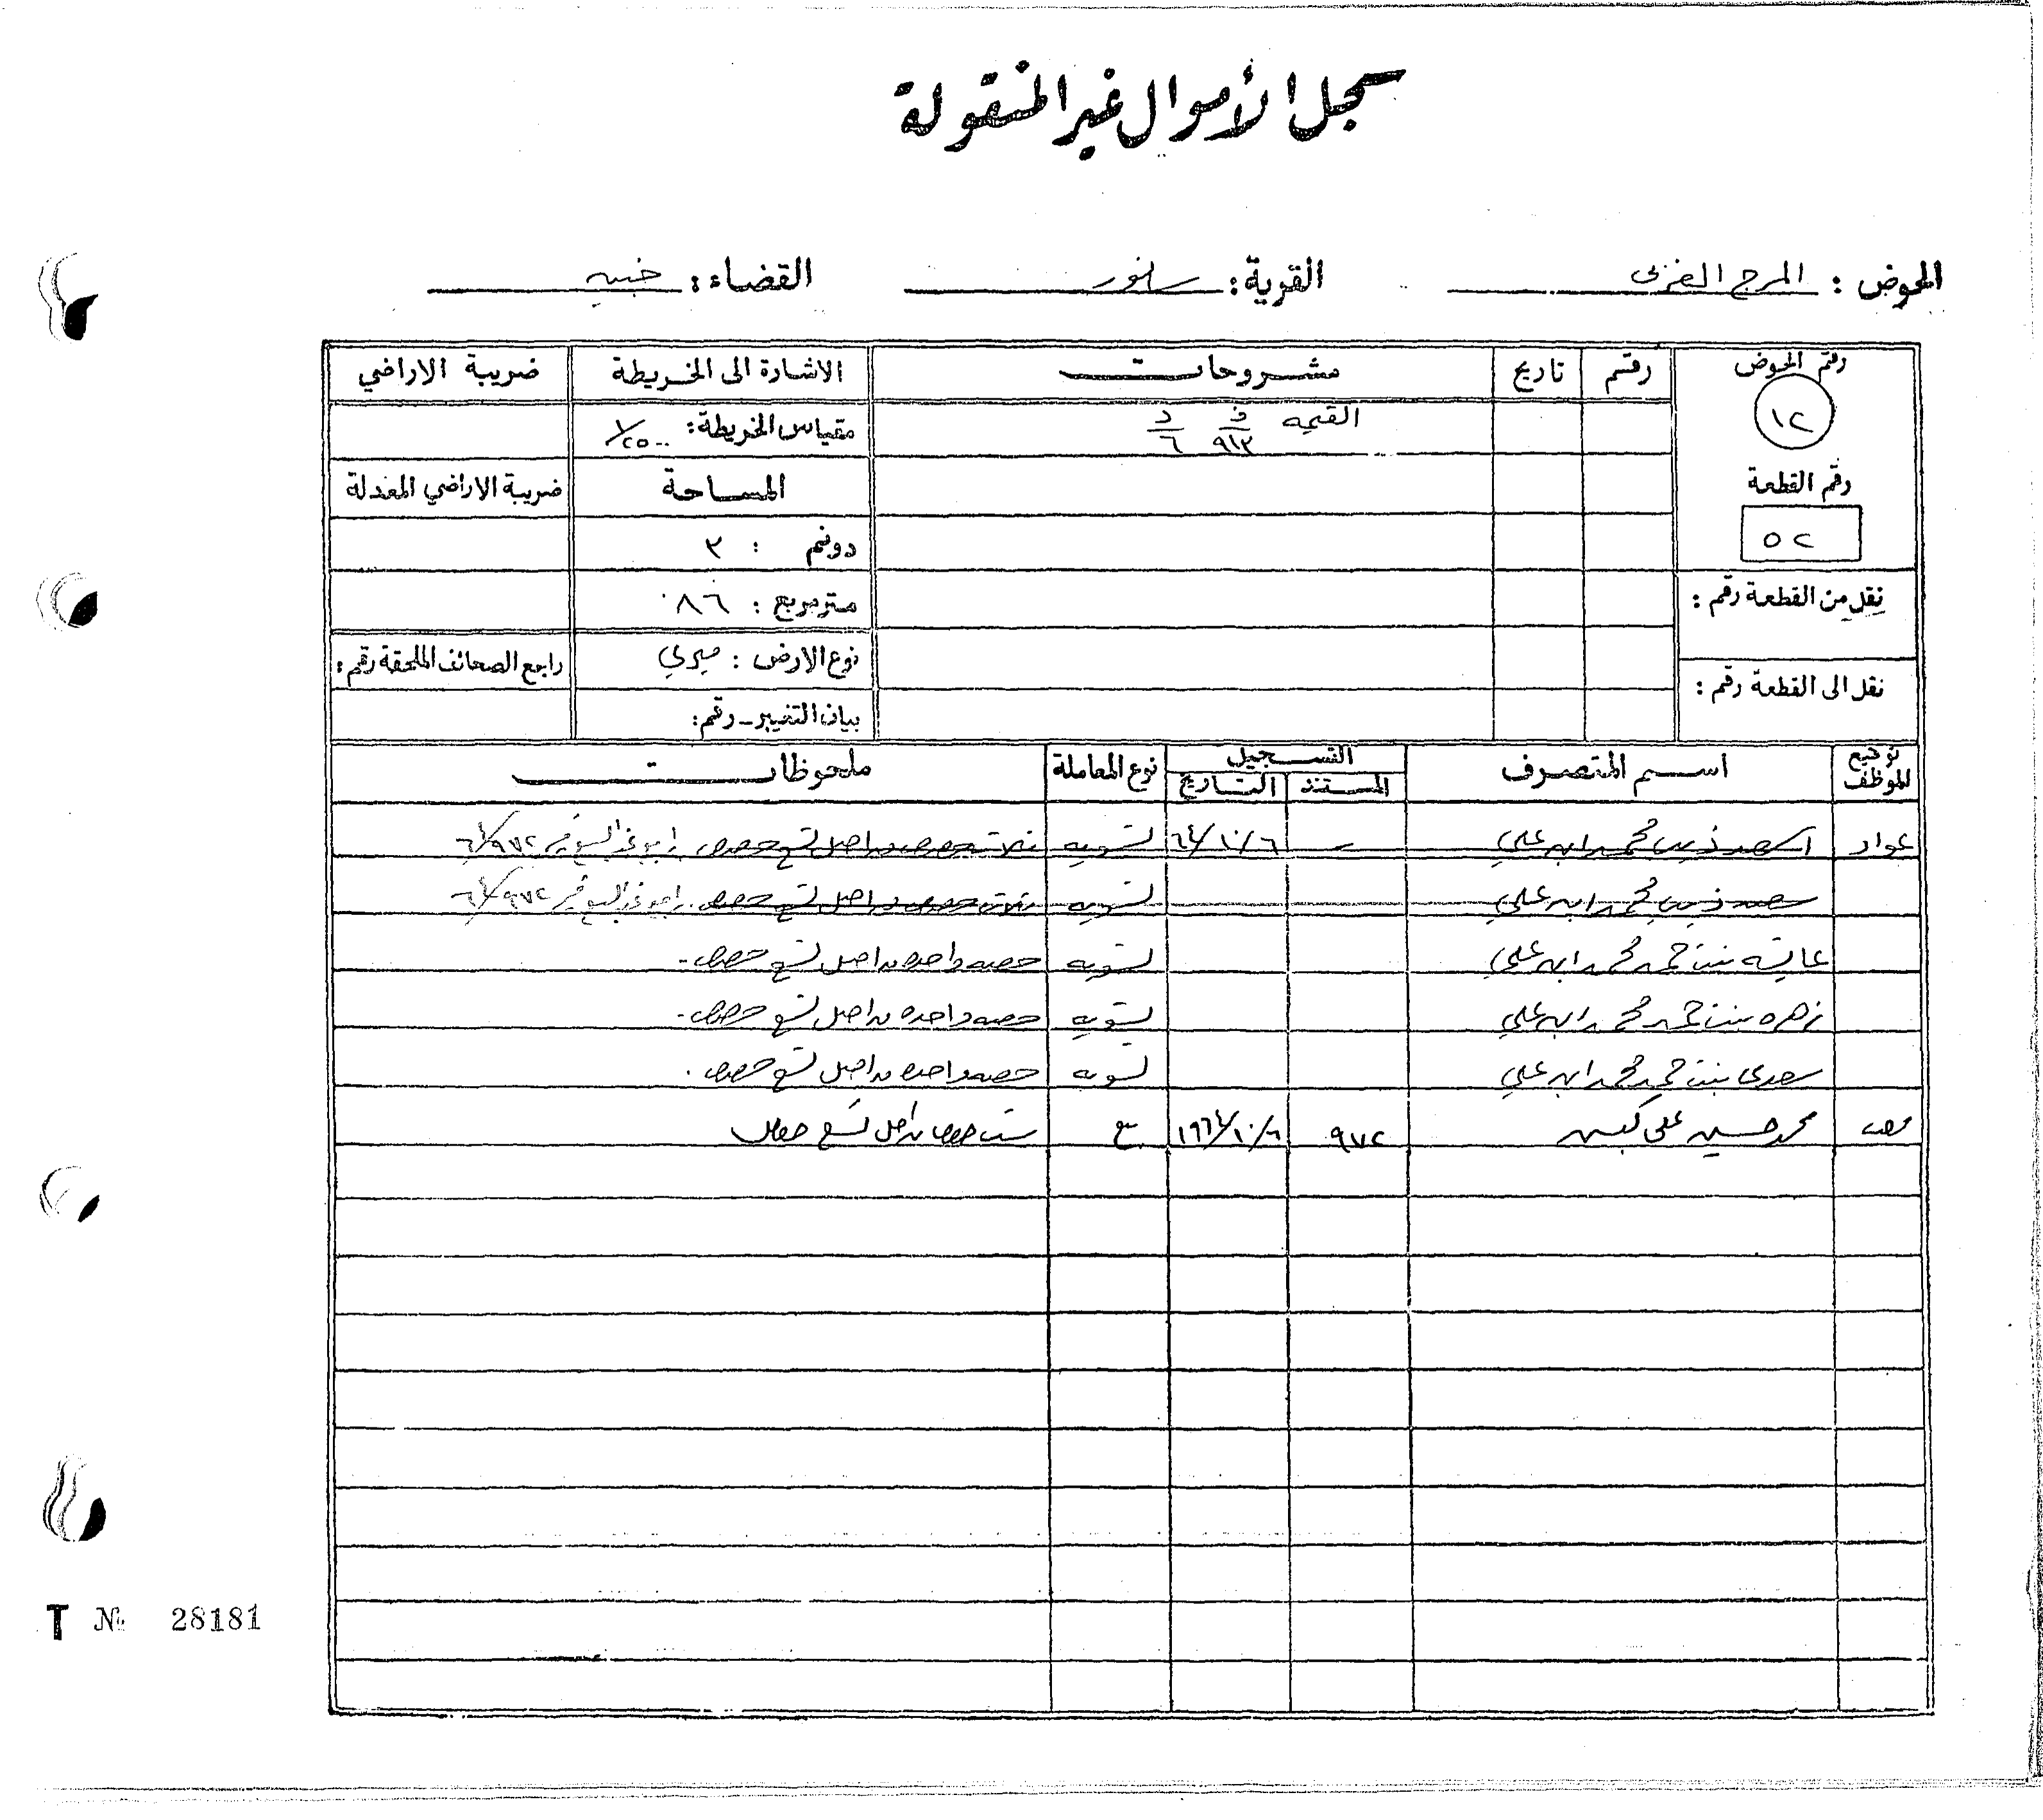 سجل الأموال غير المنقولة
الحوض : المرج الغربي القرية : القضاء : جنين
رقم الحوض رقم تاريخ مشروحات الاشارة الى الخريطة ضريبة الاراضي
١٢ القيمه ف د مقياس الخريطة : ١/٢٥٠٠
٩١٣ ٦
رقم القطعة المساحة ضريبة الاراضي المعدلة
٥٢ دونم : ٣
نقل من القطعة رقم : متر مربع : ٠٨٦
نوع الارض : ميري راجع الصحائف الملحقة رقم :
نقل الى القطعة رقم : بيان التغيير - رقم :
توقيع الموظف اسم المتصرف التسجيل نوع المعاملة ملحوظات
المستند التاريخ
عواد اسعد محمد ابو علي - ٦٤/١٠/٦ تسويه ثلاث حصص من اصل تسع حصص ٩٧٢/٦٤
سعد محمد ابو علي تسويه ثلاث حصص من اصل تسع حصص ٩٧٢/٦٤
بنت محمد ابو علي تسويه حصه واحده من اصل تسع حصص -
زهره بنت محمد ابو علي تسويه حصه واحده من اصل تسع حصص -
سعدى بنت محمد ابو علي تسويه حصه واحده من اصل تسع حصص .
محمد حسين علي ٩٧٢ ١٩٦٤/١٠/٦ بيع ست حصص من اصل تسع حصص
T № 28181